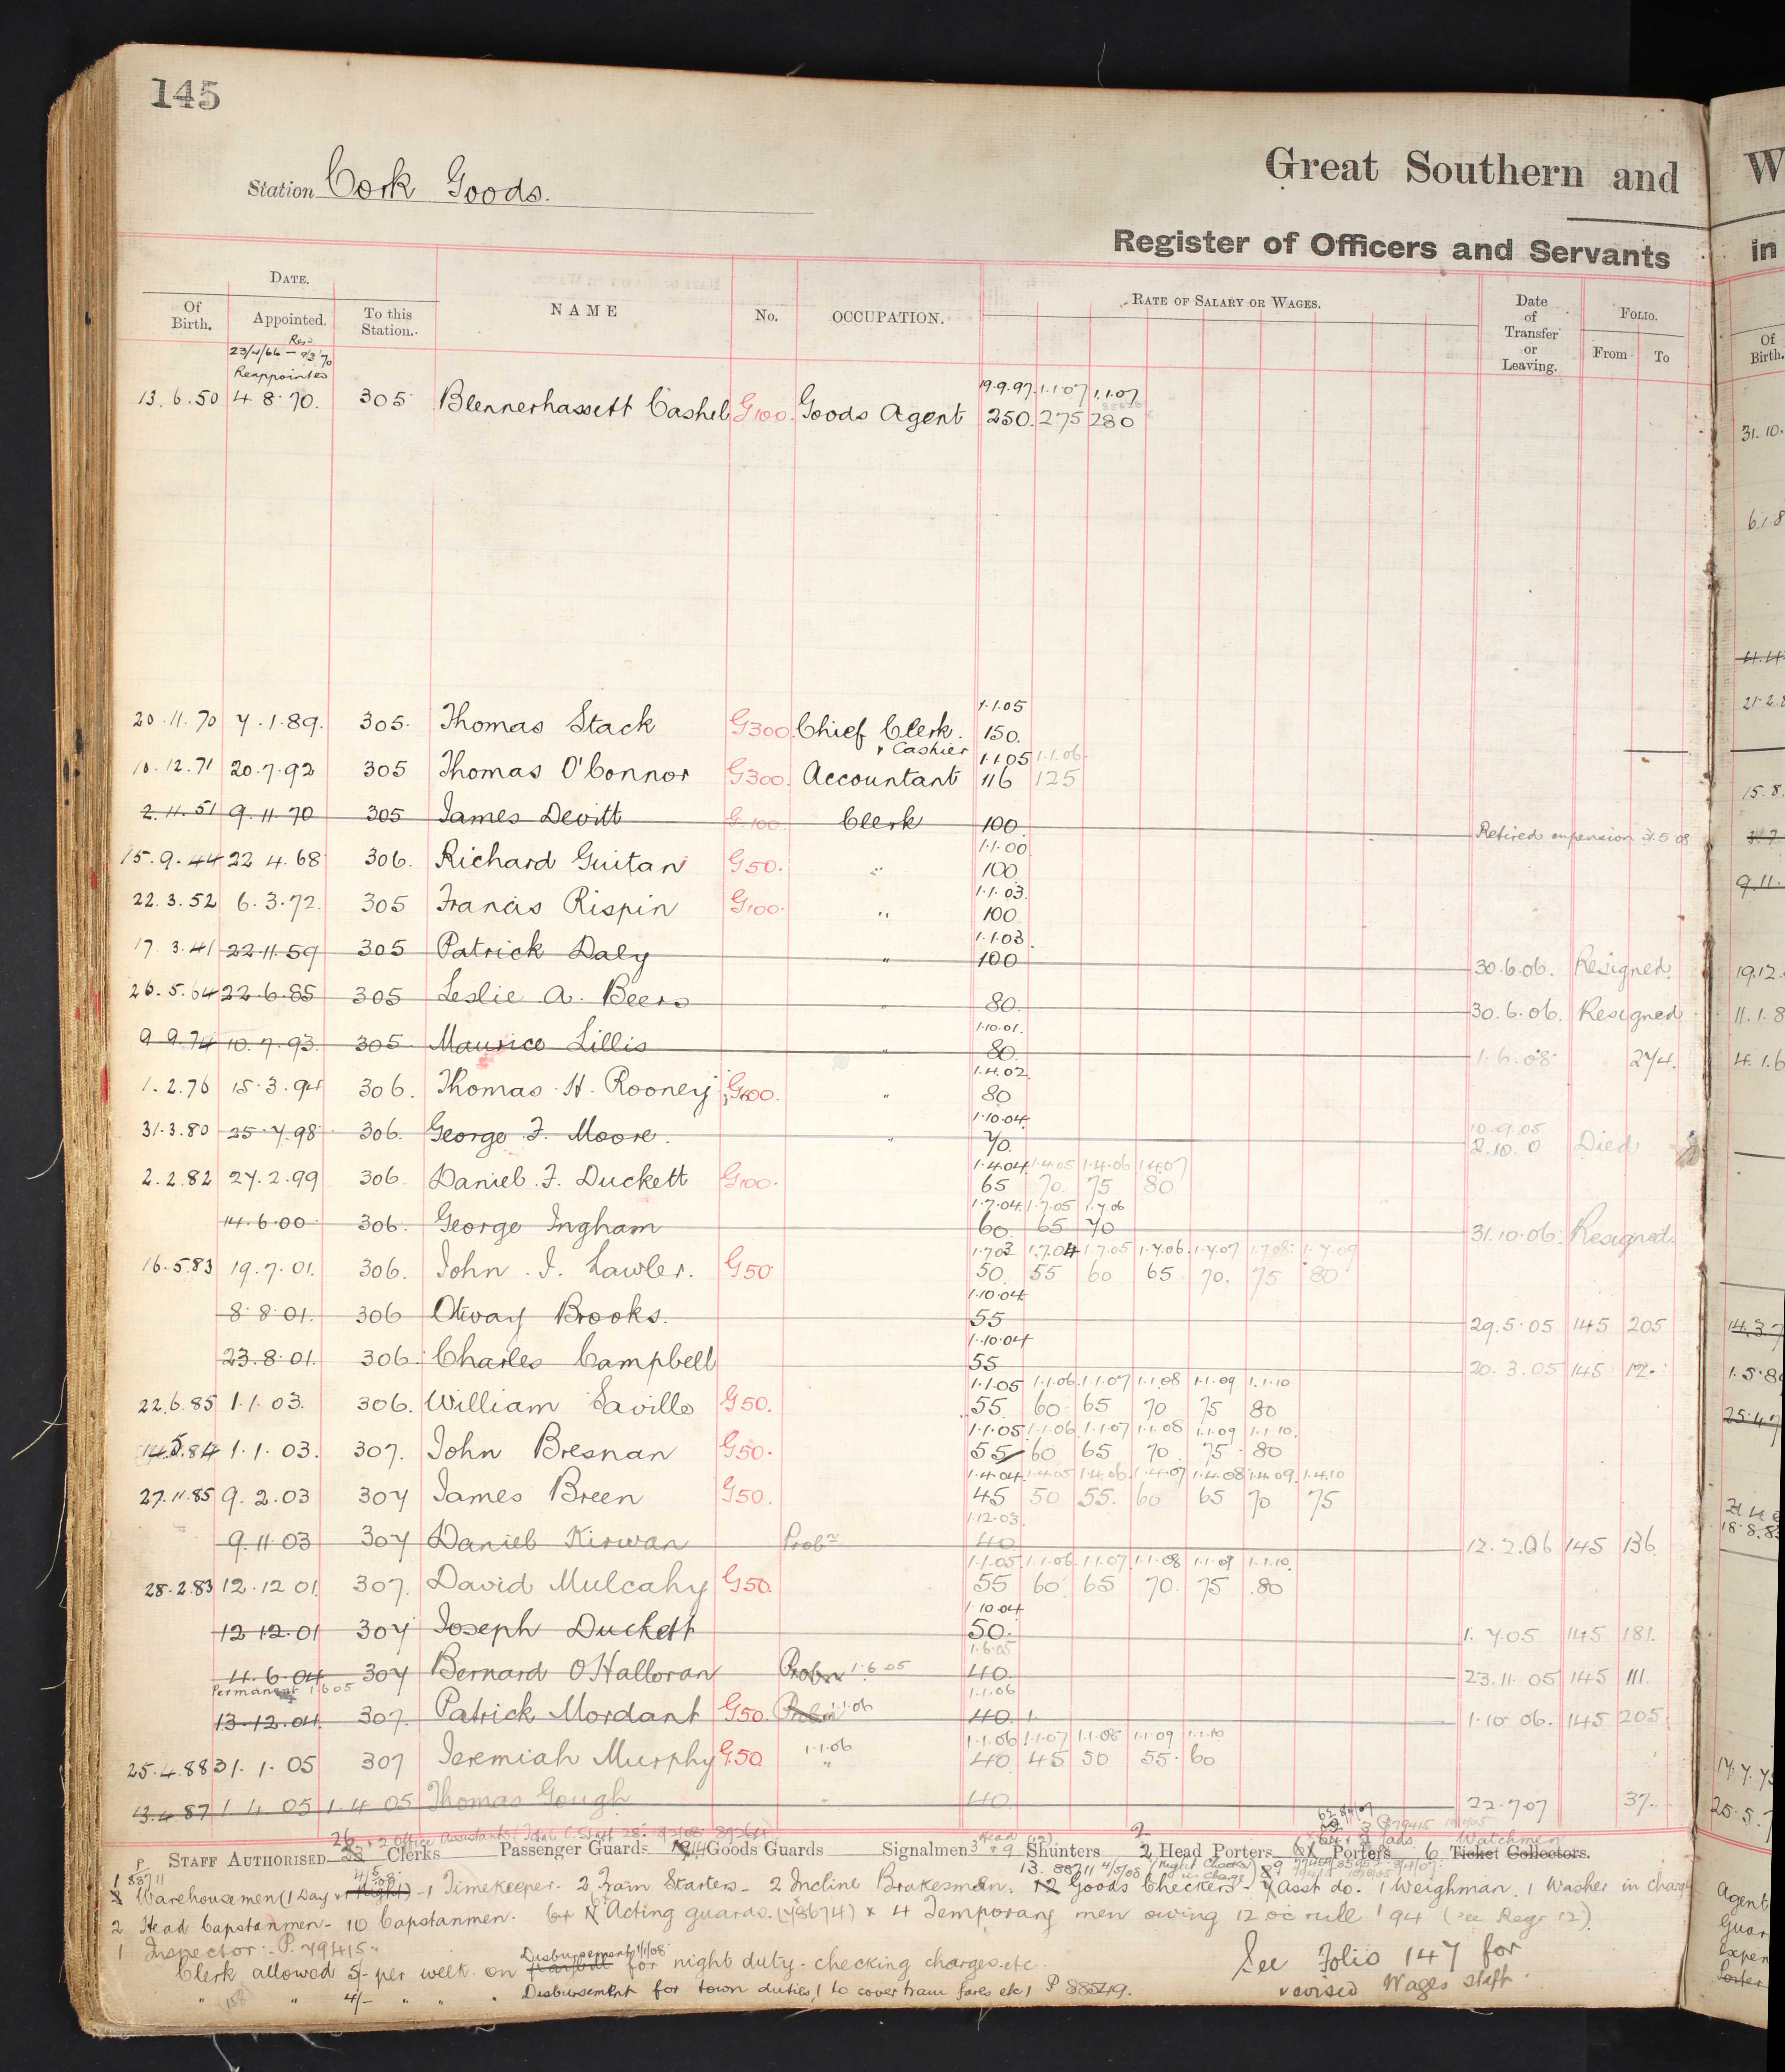 145
Station Cork Goods.
Great Southern and
W
Register of Officers and Servants
in
DATE.
Of Birth.
Appointed.
To this Station.
NAME
No.
OCCUPATION.
RATE OF SALARY OR WAGES.
Date of Transfer or Leaving.
FOLIO.
From
To
Of Birth.
23/4/66 —
Reappointed
19.9.97 1.1.07 1.1.07
13.6.50 4.8.70. 305 Blennerhassett Cashel G100. Goods Agent 250. 275 280
1.1.05
20.11.70 7.1.89. 305. Thomas Stack G300. Chief Clerk. 150.
& Cashier 1.1.05 1.1.06
10.12.71 20.7.92 305 Thomas O'Connor G300. Accountant 116 125
2.11.51 9.11.70 305 James Devitt G100. Clerk 100. Retired on pension 31.5.08
1.1.00
15.9.44 22.4.68 306. Richard Guitan G50. " 100
1.1.03.
22.3.52 6.3.72. 305 Francis Rispin G100. " 100.
1.1.03.
17.3.41 22.11.59 305 Patrick Daly " 100 30.6.06. Resigned.
26.5.64 22.6.85 305 Leslie A. Beers " 80. 30.6.06. Resigned
1.10.01.
9.9.74 10.7.93. 305 Maurice Lillis " 80. 1.6.08 274.
1.4.02.
1.2.76 15.3.94 306. Thomas H. Rooney G100. " 80
1.10.04.
31.3.80 25.7.98 306. George F. Moore. " 70. 2.10.0 Died
10.9.05
1.4.04 1.4.05 1.4.06 1.4.07
2.2.82 27.2.99 306. Daniel F. Duckett G100. 65 70 75 80
1.7.04 1.7.05 1.7.06
14.6.00 306. George Ingham 60. 65 70 31.10.06. Resigned.
1.7.03 1.7.04 1.7.05 1.7.06 1.7.07 1.7.08 1.7.09
16.5.83 19.7.01. 306. John J. Lawler. G50 50. 55 60 65 70. 75 80
1.10.04
8.8.01. 306 Otway Brooks. 55 29.5.05 145 205
1.10.04
23.8.01. 306. Charles Campbell 55 20.3.05 145 12.
1.1.05 1.1.06 1.1.07 1.1.08 1.1.09 1.1.10
22.6.85 1.1.03. 306. William Saville G50. 55 60 65 70 75 80
1.1.05 1.1.06 1.1.07 1.1.08 1.1.09 1.1.10.
14.5.84 1.1.03. 307. John Bresnan G50. 55 60 65 70 75 80
1.4.04 1.4.05 1.4.06 1.4.07 1.4.08 1.4.09 1.4.10
27.11.85 9.2.03 307 James Breen G50. 45 50 55. 60 65 70 75
1.12.03.
9.11.03 307 Daniel Kirwan Probn 40 12.2.06 145 136
1.1.05 1.1.06 1.1.07 1.1.08 1.1.09 1.1.10.
28.2.83 12.12.01. 307. David Mulcahy G50 55 60 65 70. 75 80
1.10.04
12.12.01 307 Joseph Duckett 50. 1.7.05 145 181.
1.6.05
4.6.04 307 Bernard O'Halloran Probn 1.6.05 40. 23.11.05 145 111.
Permanent 1.6.05
1.1.06
13.12.04. 307. Patrick Mordant G50. Probn 1.1.06 40. 1.10.06. 145 205
1.1.06 1.1.07 1.1.08 1.1.09 1.1.10
25.4.88 31.1.05 307 Jeremiah Murphy G50 1.1.06 " 40 45 50 55. 60
13.4.87 1.4.05 1.4.05 Thomas Gough " 40. 22.7.07 37.
26 & 2 Office Assistants
STAFF AUTHORISED 23 Clerks Passenger Guards Goods Guards Signalmen 3 Head & 9 Shunters 2 Head Porters Porters 6 Ticket Collectors.
Watchmen
Warehousemen (1 Day & 1 Night) - 1 Timekeeper. 2 Train Starters - 2 Incline Brakesmen. 12 Goods Checkers - Asst do. 1 Weighman. 1 Washer in charge
13. 88711 4/5/08
2 Head Capstanmen - 10 Capstanmen. Acting guards. (78674) & 4 Temporary men owing 12 oc rule '94 (see Regr 12).
1 Inspector - P. 79415
Disbursement 1/1/08
Clerk allowed 5/- per week on paybill for night duty - checking charges etc.
" " 4/- " " " Disbursement for town duties, (to cover tram fares etc) P 88549.
See Folio 147 for
revised Wages staff.